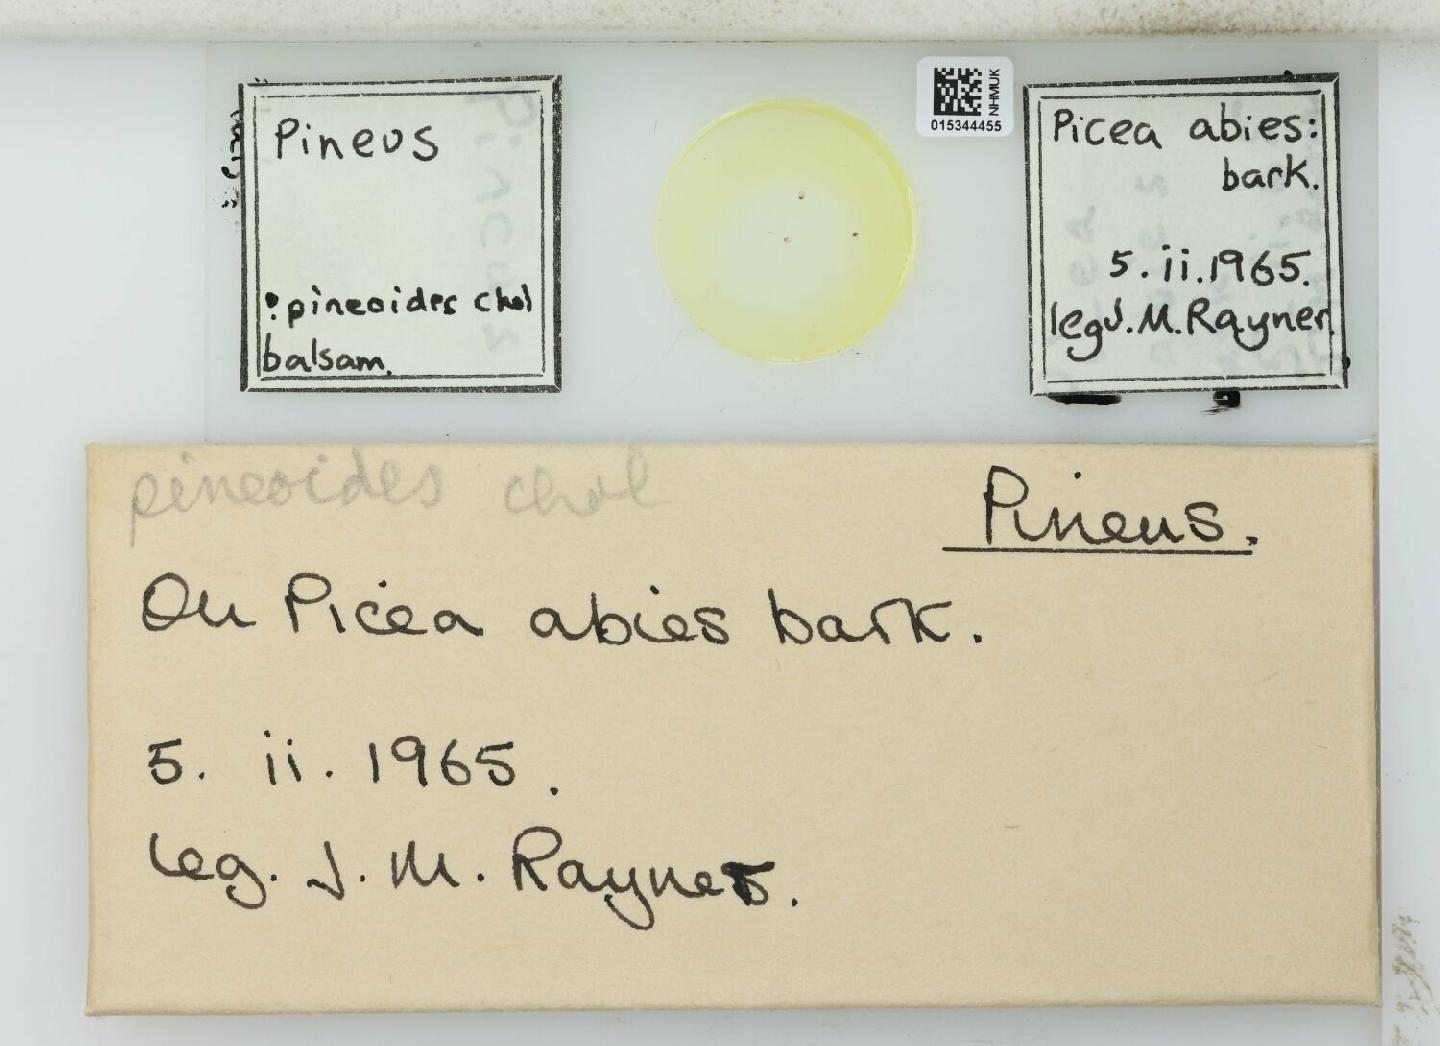 Pineus
? pineoides chol
balsam.
NHMUK
015344455
Picea abies:
bark.
5.ii.1965.
leg J. M. Rayner.
pineoides chol
Pineus.
On Picea abies bark.
5. ii. 1965.
leg. J. M. Rayner.